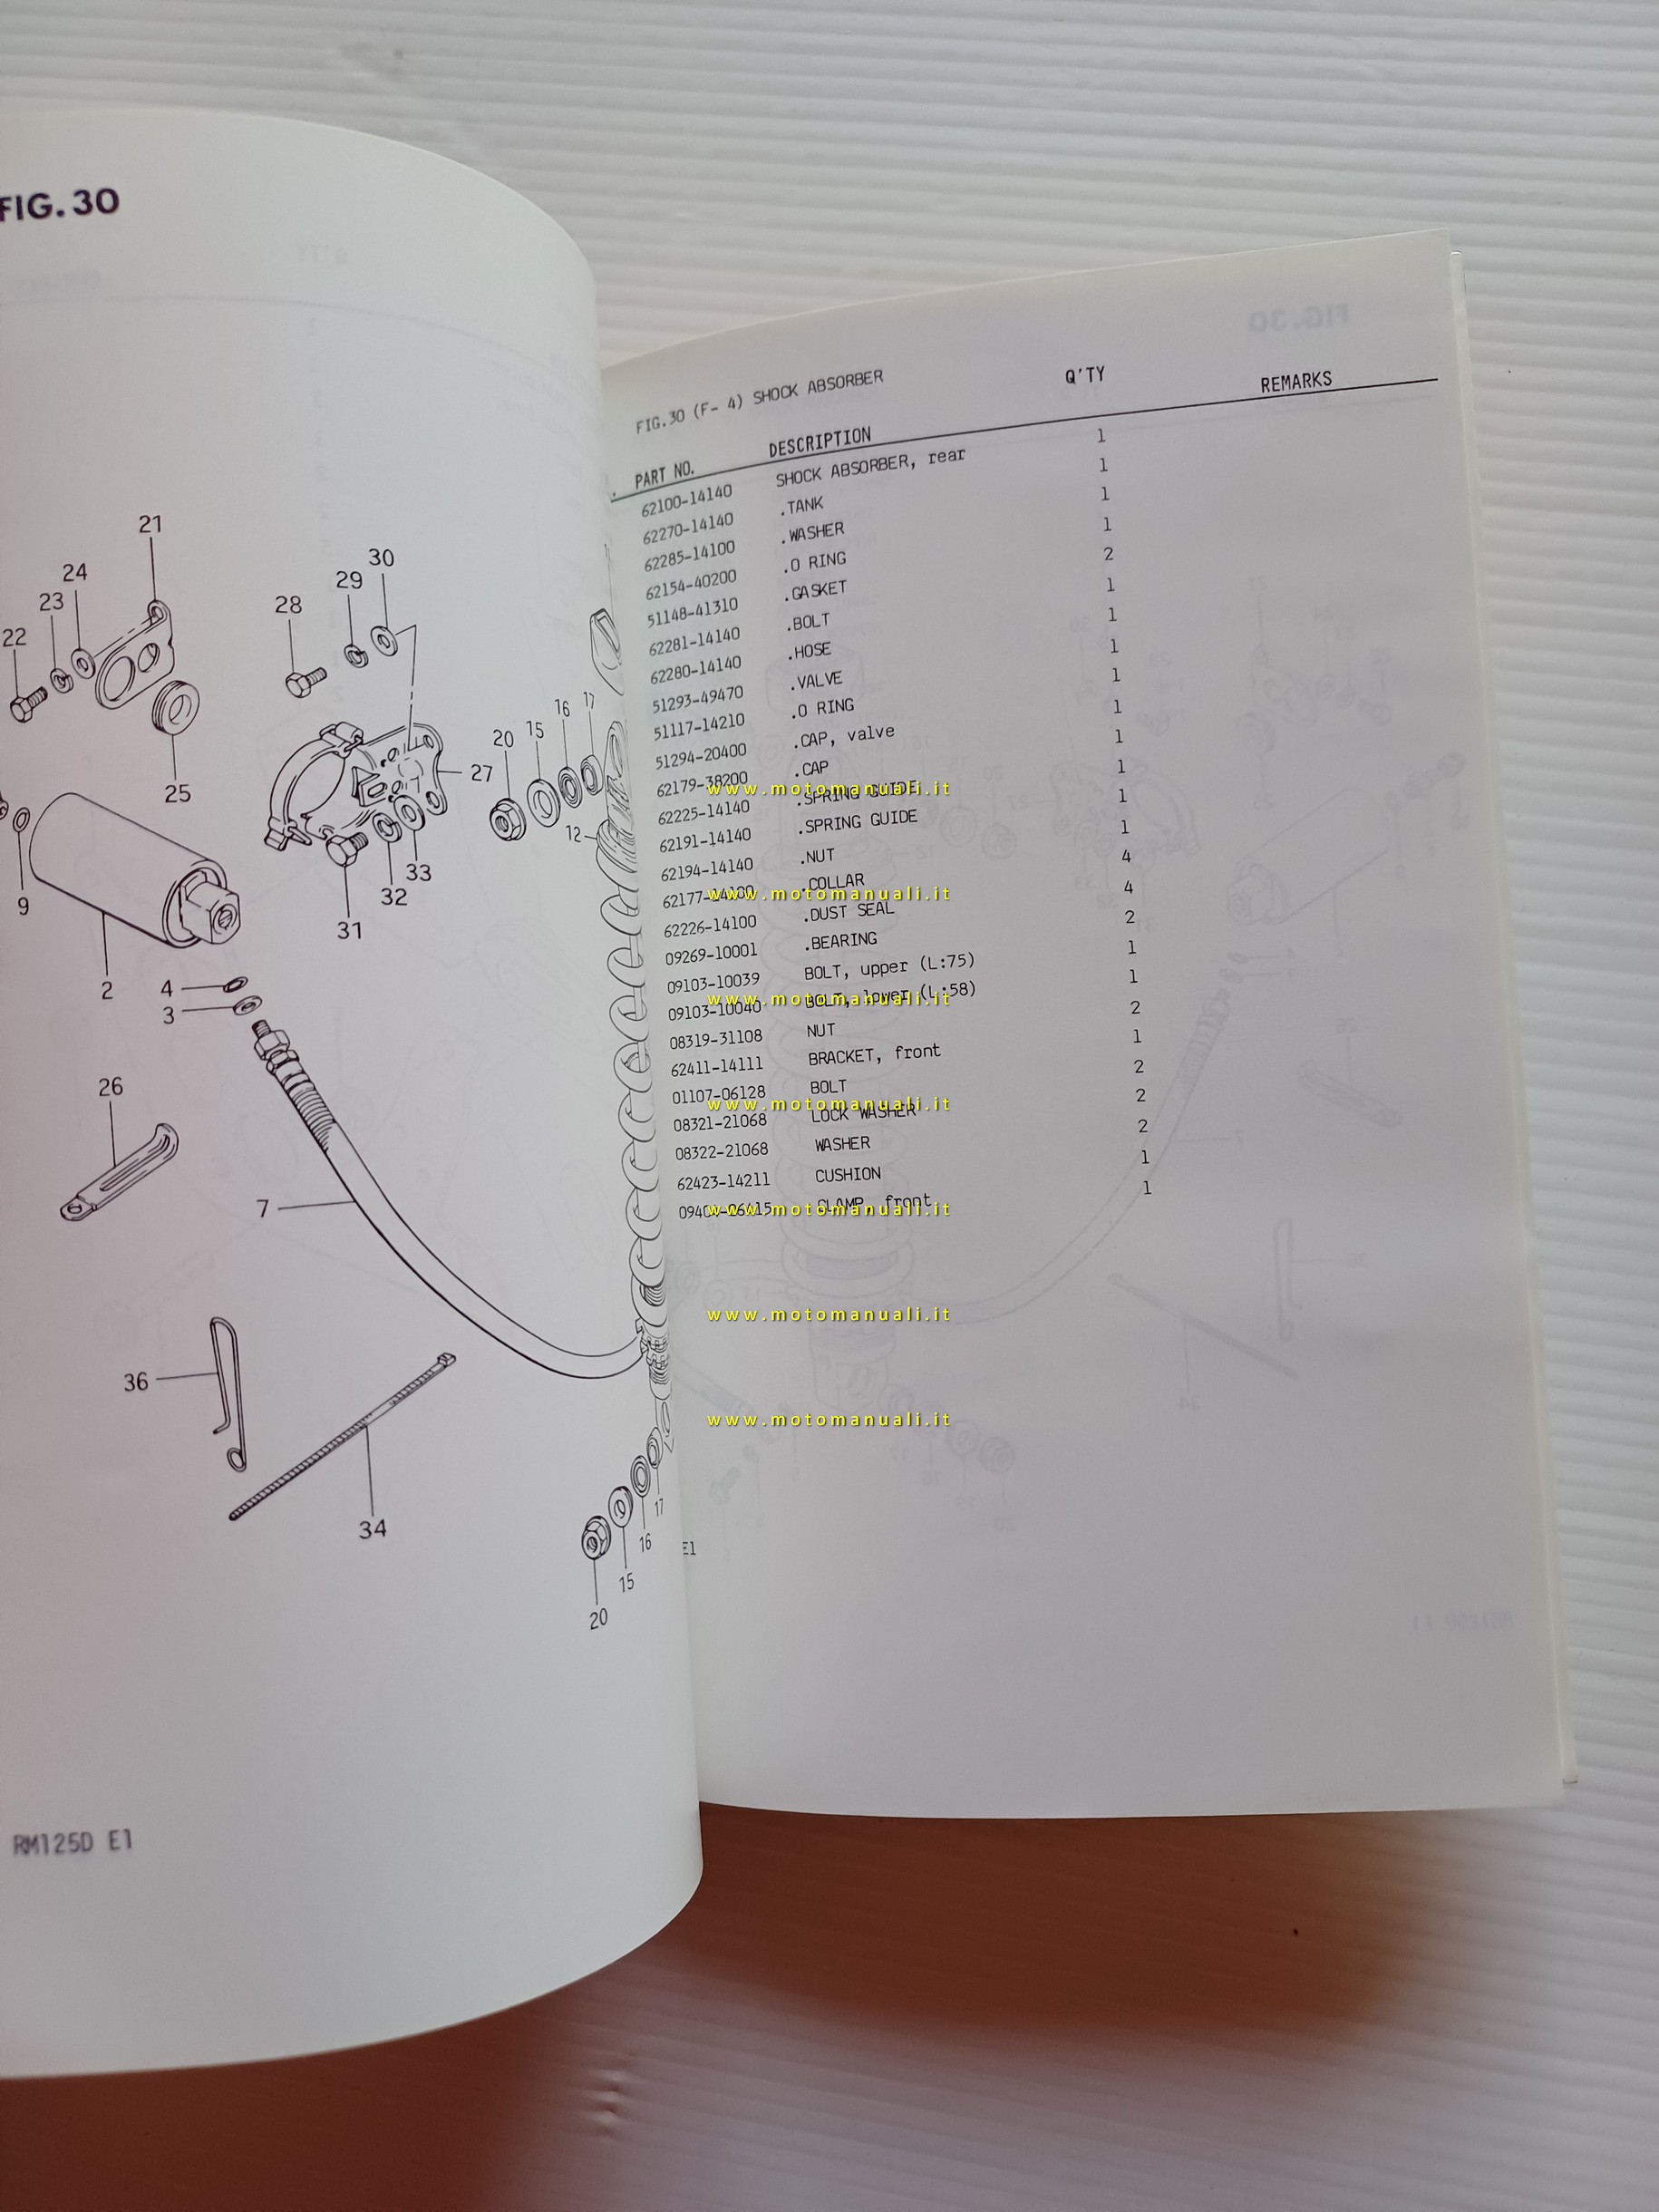 FIG.30
21
24
23
22
30
29
28
25
27
20
15
16
17
12
33
32
31
9
2
4
3
26
7
36
34
17
16
15
20
RM125D E1
FIG.30 (F- 4) SHOCK ABSORBER
PART NO. DESCRIPTION Q'TY REMARKS
62100-14140 SHOCK ABSORBER, rear 1
62270-14140 .TANK 1
62285-14100 .WASHER 1
62154-40200 .O RING 1
51148-41310 .GASKET 2
62281-14140 .BOLT 1
62280-14140 .HOSE 1
51293-49470 .VALVE 1
51117-14210 .O RING 1
51294-20400 .CAP, valve 1
62179-38200 .CAP 1
62225-14140 .SPRING GUIDE 1
62191-14140 .SPRING GUIDE 1
62194-14140 .NUT 1
62177-14100 .COLLAR 4
62226-14100 .DUST SEAL 4
09269-10001 .BEARING 2
09103-10039 BOLT, upper (L:75) 1
09103-10040 BOLT, lower (L:58) 1
08319-31108 NUT 2
62411-14111 BRACKET, front 1
01107-06128 BOLT 2
08321-21068 LOCK WASHER 2
08322-21068 WASHER 2
62423-14211 CUSHION 1
CLAMP, front 1
E1
www.motomanuali.it
www.motomanuali.it
www.motomanuali.it
www.motomanuali.it
www.motomanuali.it
www.motomanuali.it
www.motomanuali.it